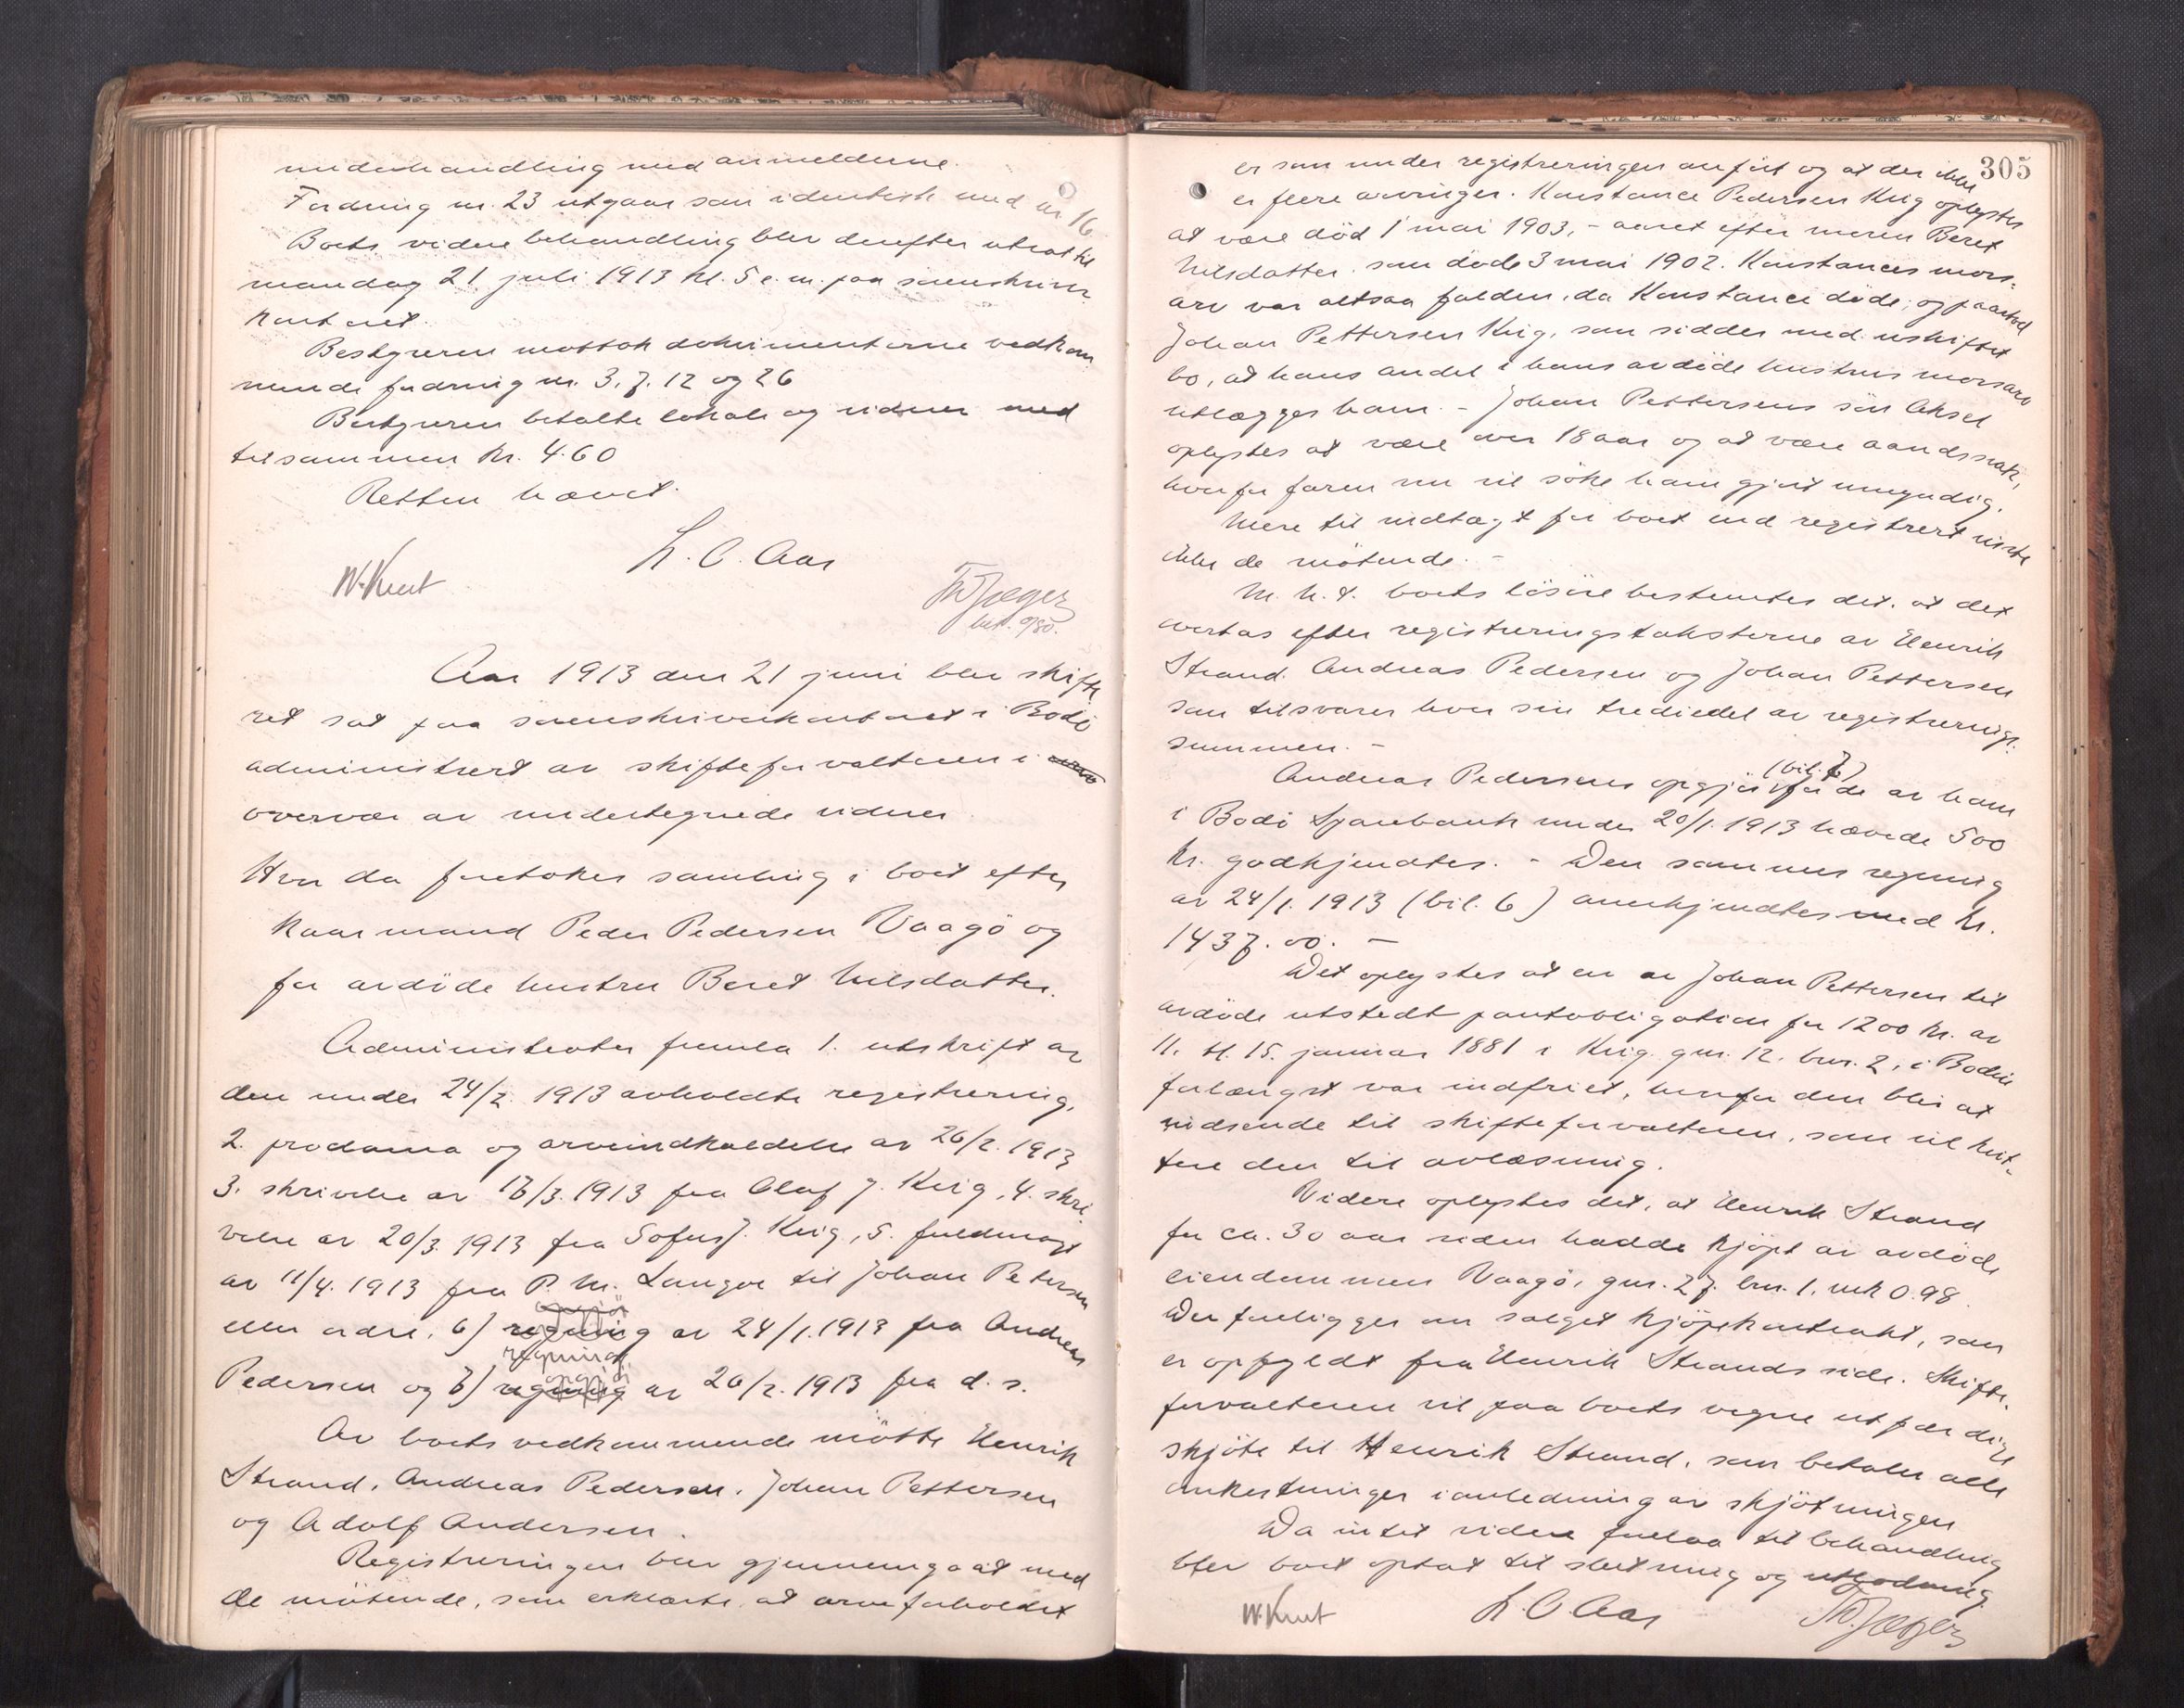 underhandling med anmelderne.
Fordring nr. 23 utgaar som identisk med nr 16
Boets videre behandling blev derefter utsat til
mandag 21. juli 1913 kl. 5 e.m. paa sorenskriver
kontoret.
Bestyreren mottok dokumenterne vedkom
mende fordring nr. 3, 7, 12 og 26
Bestyreren betalte lokale og vidner med
tilsammen kr. 4.60
Retten hævet.
L. O. Aas
W. Knut
Th Jæger
bet. 0/80.
Aar 1913 den 21 juni blev skifte
ret sat paa sorenskriverkontoret i Bodö
administrert av skifteforvalteren i
overvær av undertegnede vidner.
Hvor da foretokes samling i boet efter
kaarmand Peder Pedersen Vaagö og
før avdöde hustru Beret Nilsdatter.
Administrator fremla 1. utskrift av
den under 24/2. 1913 avholdte registrering,
2. proclama og arveindkaldelse av 26/2. 1913
3. skrivelse av 18/3. 1913 fra Olaf J. Kvig, 4. skri
velse av 20/3. 1913 fra Sofus J. Kvig, 5. fuldmagt
av 11/4. 1913 fra P. M. Langve til Johan Petersen
eller ordre, 6) regning av 24/1. 1913 fra Andreas
Pedersen og 7) opgjör av 26/2. 1913 fra d. s.
Av boets vedkommende mötte Henrik
Strand, Andreas Pedersen, Johan Pettersen
og Adolf Andersen.
Registreringen blev gjennemgaat med
de mötende, som erklærte, at arveforholdet
305
er som under registreringen anfört og at der ikke
er flere arvinger. Konstance Pedersen Kvig oplystes
at være död 1 mai 1903, - aaret efter moren Beret
Nilsdatter som döde 3 mai 1902. Konstances mors-
arv var altsaa falden, da Konstance döde, og paastod
Johan Pettersen Kvig, som sidder med uskiftet
bo, at hans andel i hans avdöde hustrus morsarv
utlægges ham. - Johan Pettersens sön Aksel
oplystes at være over 18 aar og at være aandssvak,
hvorfor faren nu vil söke ham gjort umyndig.
Mere til indtægt for boet end registrert visste
ikke de mötende. -
M. h. t. boets lösöre bestemtes det, at det
overtas efter registreringstaksterne av Henrik
Strand, Andreas Pedersen og Johan Pettersen
som tilsvarer hver sin trediedel av registrerings
summen. -
(bil. 7)
Andreas Pedersens opgjör for de av ham
i Bodö Sparebank under 20/1. 1913 hævede 500
kr. godkjendtes. - Den sammes regning
av 24/1. 1913 (bil. 6) anerkjendtes med kr.
1437.00. -
Det oplystes at en av Johan Pettersen til
avdöde utstedt pantobligation for 1200 kr. av
11. tl. 15. januar 1881 i Kvig. gnr. 12. bnr. 2, i Bodin
forlængst var indfriet, hvorfor den blir at
indsende til skifteforvalteren, som vil kvit-
tere den til avlæsning.
Videre oplystes det, at Henrik Strand
for ca. 30 aar siden hadde kjöpt av avdöde
eiendommen Vaagö, gnr. 27. bnr. 1, mk 0.98.
Der foreligger om salget kjöpekontrakt, som
er opfyldt fra Henrik Strands side. Skifte-
forvalteren vil paa boets vegne utfærdige
skjöte til Henrik Strand, som betaler alle
omkostninger i anledning av skjötningen
Da intet videre forelaa til behandling
blev boet optat til slutning og utlodning.
W. Knut
L. O Aas
Th. Jæger